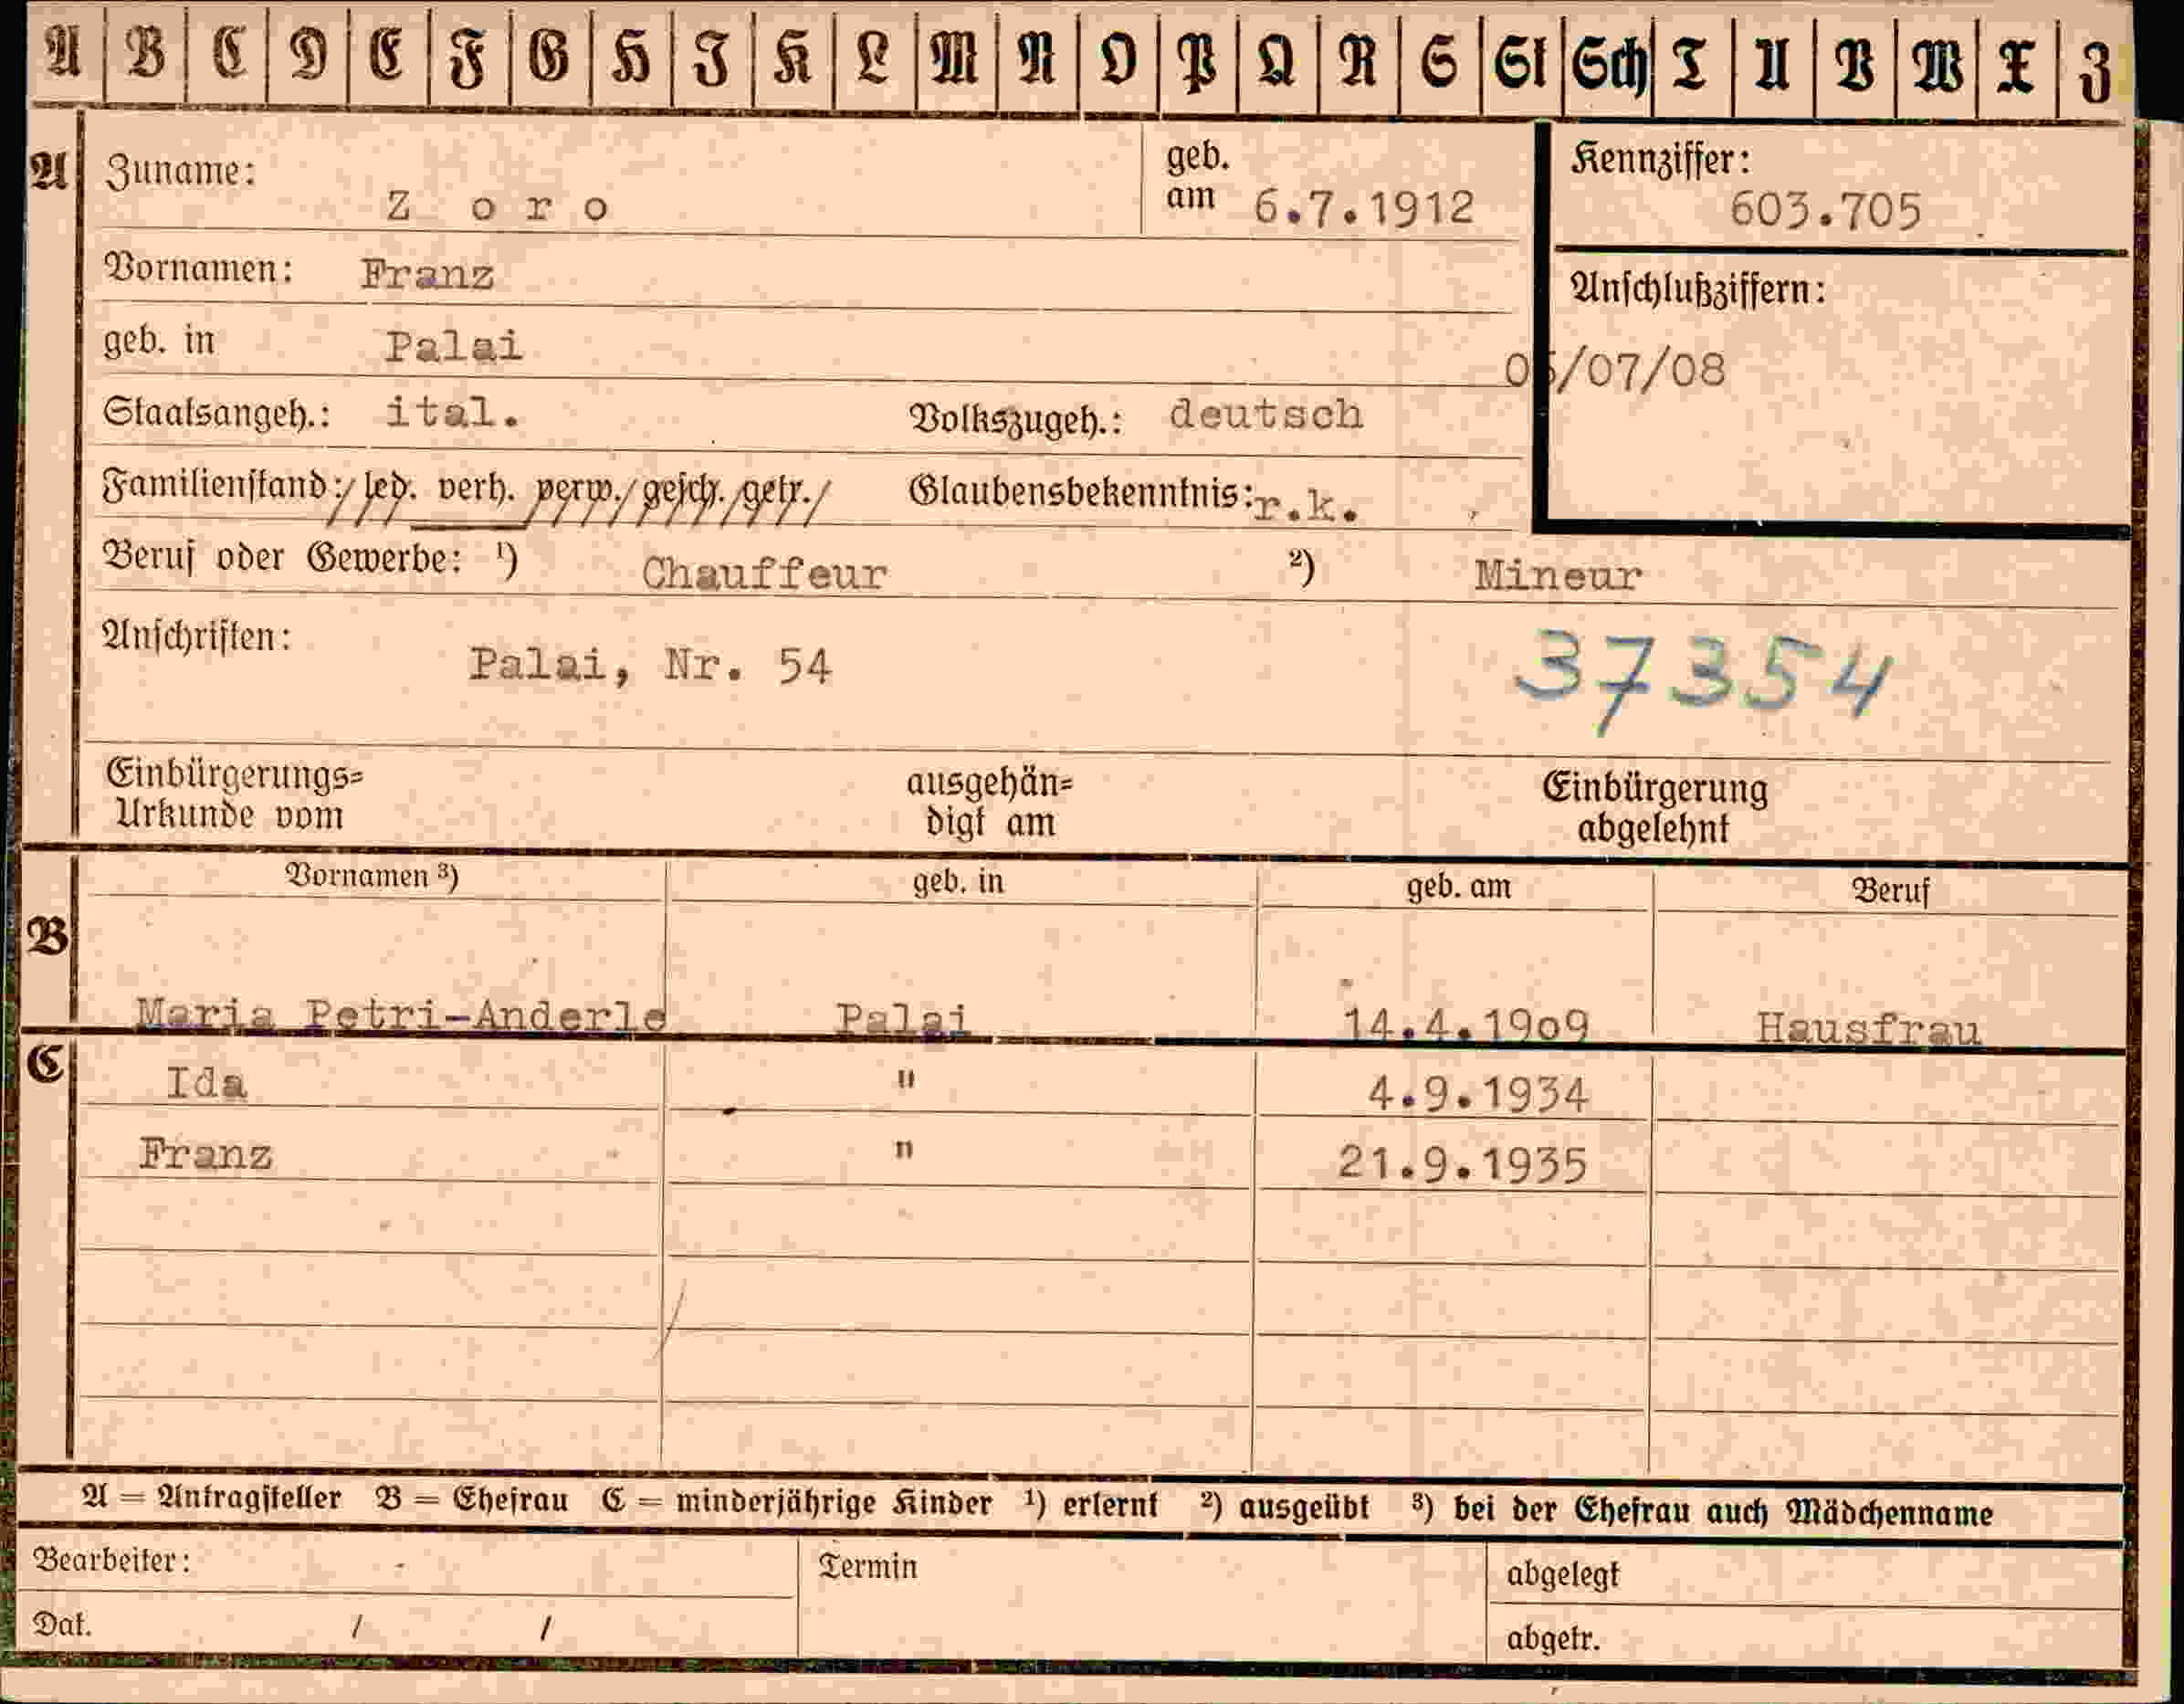 A B C D E F G H I K L M N O P Q R S St Sch T U V W X Z
A Zuname: Z o r o geb. am 6.7.1912 Kennziffer: 603.705
Vornamen: Franz
Anschlußziffern:
geb. in Palai
05/07/08
Staatsangeh.: ital. Volkszugeh.: deutsch
Familienstand: led. verh. verw. gesch. getr. Glaubensbekenntnis: r.k.
Beruf oder Gewerbe: 1) Chauffeur 2) Mineur
Anschriften: Palai, Nr. 54 37354
Einbürgerungs= ausgehän= Einbürgerung
Urkunde vom digt am abgelehnt
Vornamen 3) geb. in geb. am Beruf
B
Maria Petri-Anderle Palai 14.4.19o9 Hausfrau
C
Ida " 4.9.1934
Franz " 21.9.1935
A = Antragsteller B = Ehefrau C = minderjährige Kinder 1) erlernt 2) ausgeübt 3) bei der Ehefrau auch Mädchenname
Bearbeiter: Termin abgelegt
Dat. / / abgetr.